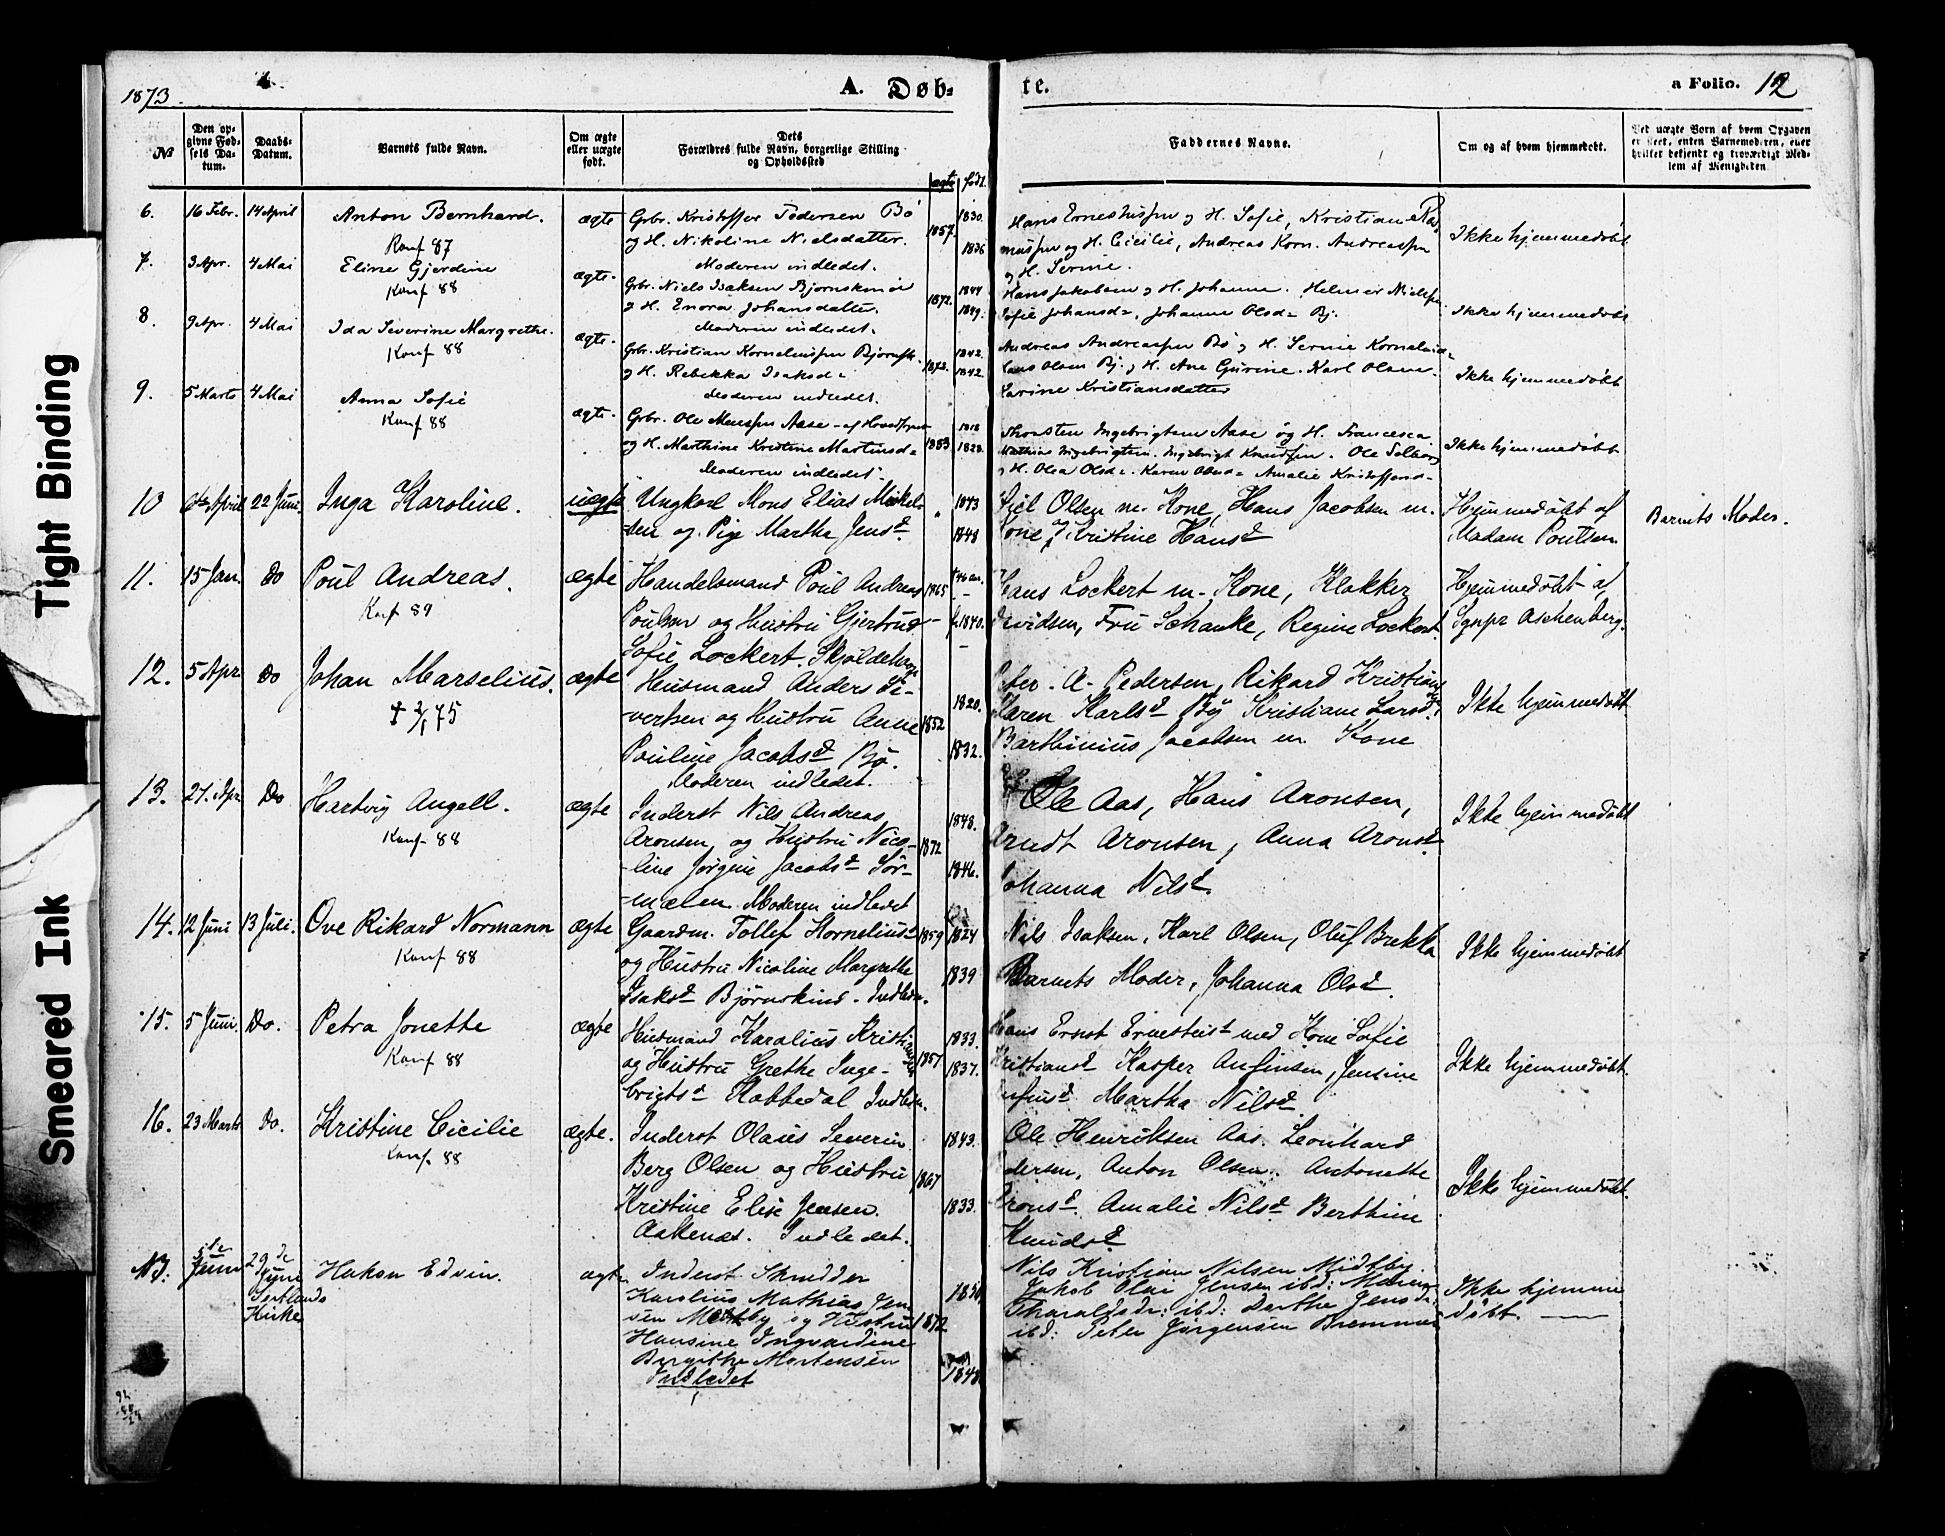 1873.
A. Døb-
te.
a Folio. 12
No
Den op-
givne Fød-
sels Da-
tum.
Daabs-
Datum.
Barnets fulde Navn.
Om ægte
eller uægte
født.
Dets
Forældres fulde Navn, borgerlige Stilling
og Opholdssted
ægtv. født.
Faddernes Navne.
Om og af hvem hjemmedøbt.
Ved uægte Børn af hvem Opgaven
er skeet, enten Barnemoderen, eller
hvilket bekjendt og troværdigt Med-
lem af Menigheden.
6. 16 Febr. 14 April Anton Bernhard. ægte
Konf 87
Grbr. Kristoffer Pedersen Bø
og H. Nikoline Nielsdatter.
Moderen indledet.
1857. 1830. 1836
Hans Ernestussen og H. Sofie, Kristian Ra-
mussen og H. Cicilie, Andreas Korn. Andreassen
og H. Serine.
Ikke hjemmedøbt
7. 3 Apr. 4 Mai Eline Gjerdine ægte.
Konf 88
Grbr. Niels Isaksen Bjørnskinn
og H. Enora Johansdatter.
Moderen indledet.
1872. 1844 1849.
Hans Jakobsen og H. Johanne. Helmer Nielssen
Sofie Johansd=, Johanne Olsd= Bj.
Ikke hjemmedøbt
8. 9 Apr. 4 Mai Ida Severine Margrethe. ægte.
Konf 88
Grbr. Kristian Korneliussen Bjørnsk.
og H. Rebekka Isaksd=
Moderen indledet.
1872. 1842. 1842
Andreas Andreassen Bø og H. Serine Kornelusd=
Hans Olsen Bj. og H. Ane Gurine. Karl Olsen.
Karine Kristiansdatter
Ikke hjemmedøbt
9. 5 Marts 4 Mai Anna Sofie ægte.
Konf 88
Grbr. Ole Monssen Aase
og H. Marthine Kristine Martinsd=
Moderen indledet.
1853 1818 1828.
Thorsten Ingebrigtsen Aase og H. Francesca.
Mathias Ingebrigtsen. Ingebrigt Knudsen. Ole Solberg
og H. Olea Olsd=. Karen Olsd= Amalie Kristoffersd=
Ikke hjemmedøbt
10 April 22 Juni. Inga Karoline. uægte
Ungkarl Mons Elias Mikel-
sen og Pige Marthe Jensd.
" 1843 1848
Kjel Olsen m. Kone, Hans Jacobsen m.
Kone, Kristine Hansd
Hjemmedøbt af
Madam Poulsen.
Barnets Moder.
11. 15 Jan. Do Poul Andreas. ægte
Konf 89
Handelsmand Poul Andreas
Poulsen og Hustru Gjertrud
Sofie Lockert. Skjoldehavn
1865 46 an. f. 1840.
Hans Lockert m. Kone, Klokker
Davidsen, Fru Schanke, Regine Lockert
Hjemmedøbt af
Sgnpr Aschenberg.
12. 5 Apr. Do Johan Marselius. ægte
† 2/1 75
Husmand Anders Si-
vertsen og Hustru Anne
Pouline Jacobsd Bø.
Moderen indledet.
1852 1820. 1832.
Peter A. Pedersen, Rikard Kristians
Karen Karlsd Bø Kristiane Larsd.
Barthinius Jacobsen m. Kone
Ikke hjemmedøbt
13. 27. Apr. Do Hartvig Angell. ægte
Konf. 88
Inderst Nils Andreas
Aronsen, og Hustru Nico-
line Jørgine Jacobsd Sør-
mælen. Moderen indledet
1872 1848. 1846.
Ole Aas, Hans Aronsen,
Arndt Aronsen, Anna Aronsd.
Johanna Nilsd.
Ikke hjemmedøbt
14. 12 Juni 13 Juli. Ove Rikard Normann ægte
Konf 88
Gaardm. Tollef Kornelius
og Hustru Nicoline Margrethe
Isaksd Bjørnskind. Indledn.
1859 1824 1839
Nils Isaksen, Karl Olsen, Oluf Brekka
Barnets Moder, Johanna Olsd.
Ikke hjemmedøbt
15. 5 Juni. Do. Petra Jonette ægte
Konf 88
Husmand Karolius Kristiansen
og Hustru Grethe Inge-
brigtsd Kobbedal Indledn.
1857 1833. 1837.
Hans Ernst Ernestus med Kone Sofie
Kristiansd Kasper Anfinsen, Jensine
Anfinsd Martha Nilsd
Ikke hjemmedøbt.
16. 23 Marts Do. Kristine Cicilie ægte.
Konf. 88
Inderst Olaus Severin
Berg Olsen og Hustru
Kristine Elise Jensen.
Aakenes. Indledet.
1867 1843. 1833.
Ole Henriksen Aas. Leonhard
Pedersen, Anton Olsen. Antonette
Aronsd. Amalie Nilsd. Berthine
Knudsd
Ikke hjemmedøbt.
Juni 29de
Juni
Sortlands
Kirke
Hakon Edvin. ægte
Inderst Skrædder
Karolius Mathias Jen-
sen Midtby og Hustru
Hansine Ingvardine
Birgithe Mortensen
Indledet
1872 1850 1848.
Nils Kristian Nilsen Midtby.
Jakob Olai Jensen ibd: Maren
Tharaldsdr: ibd: Dorthe Jensdr:
ibd: Peter Jørgensen Bremnes
Ikke hjemme
døbt.
Tight Binding
Smeared Ink